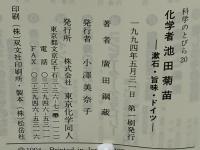 科学のとびら20
化学者 池田菊苗
──漱石・旨味・ドイツ──
一九九四年五月三一日 第一刷発行
著者 廣田鋼蔵
発行者 小澤美奈子
発行所 株式会社東京化学同人
東京都文京区千石三―三六―七
電話 〇三―三九四六―五三一一
FAX 〇三―三九四六―五三一六
印刷 (株)双文社印刷所・製本 (株)松岳社